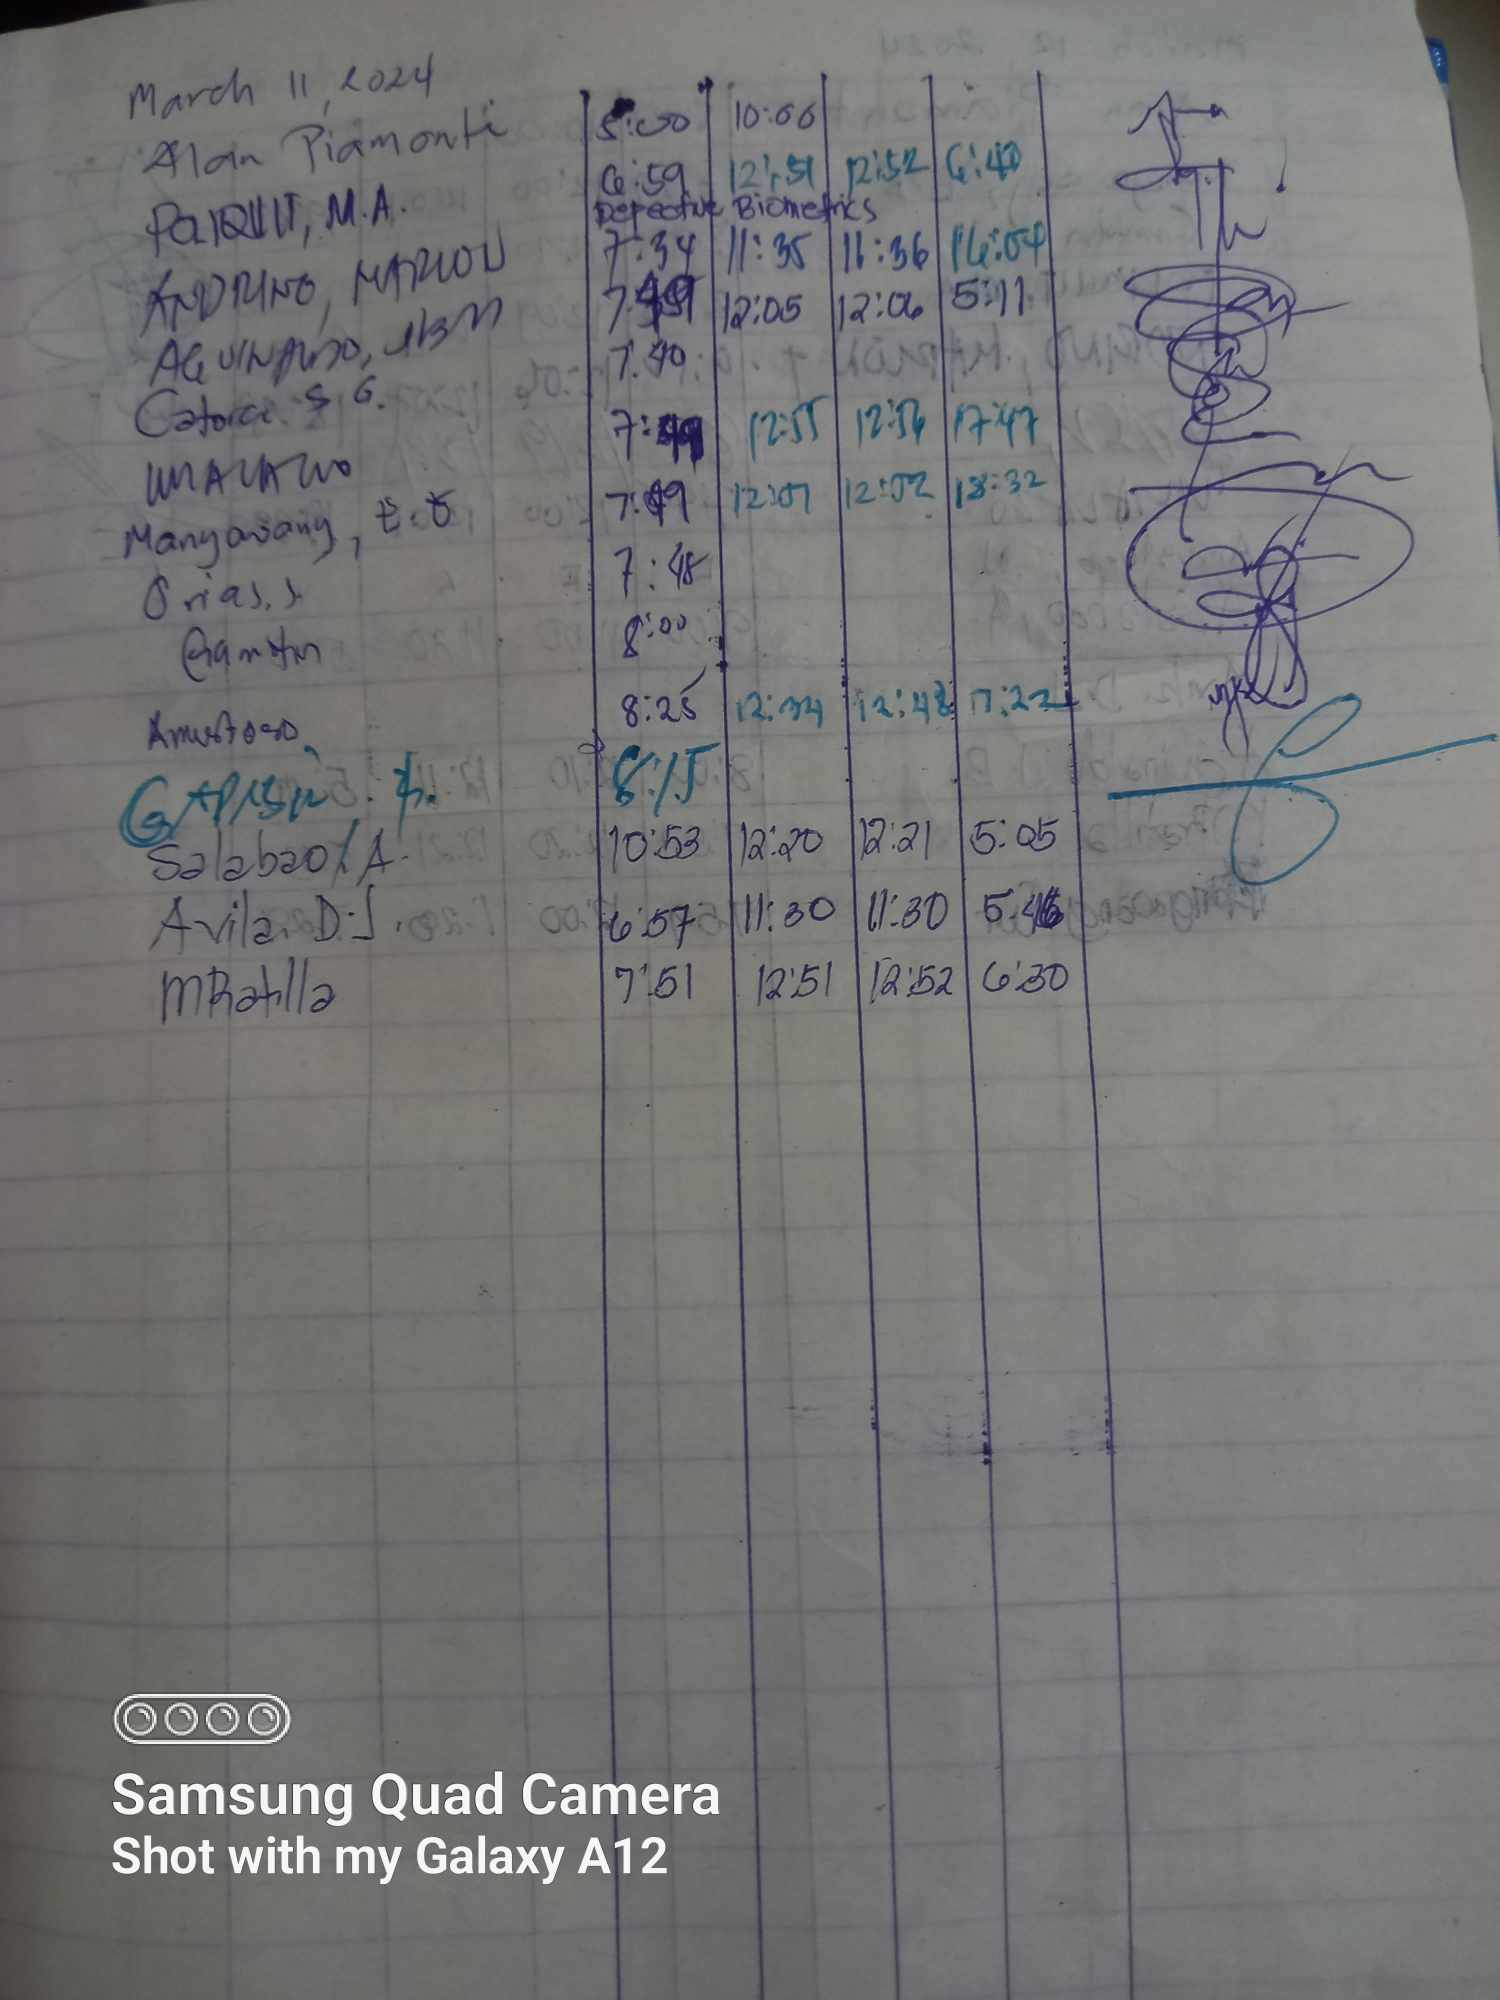 March 11, 2024
Alan Piamonte 5:00 10:00
PAIQUIT, M.A. 6:59 12:51 12:52 6:40
Defective Biometrics
ANDRINO, MARLON 7:34 11:35 11:36 16:04
AGUINALDO, 12:05 12:06 5:11
Catorce S G. 7:40
7:49 12:55 12:56 17:47
Mangawang, E.E 7:49 12:01 12:02 18:32
Orias, J. 7:48
Gamtin 8:00
Amustoso 8:25 12:34 12:48 17:22
8:15
Salabao, A. 10:53 12:20 12:21 5:05
Avila, D.J. 6:57 11:30 11:30 5:46
MRatilla 7:51 12:51 12:52 6:30
Samsung Quad Camera
Shot with my Galaxy A12